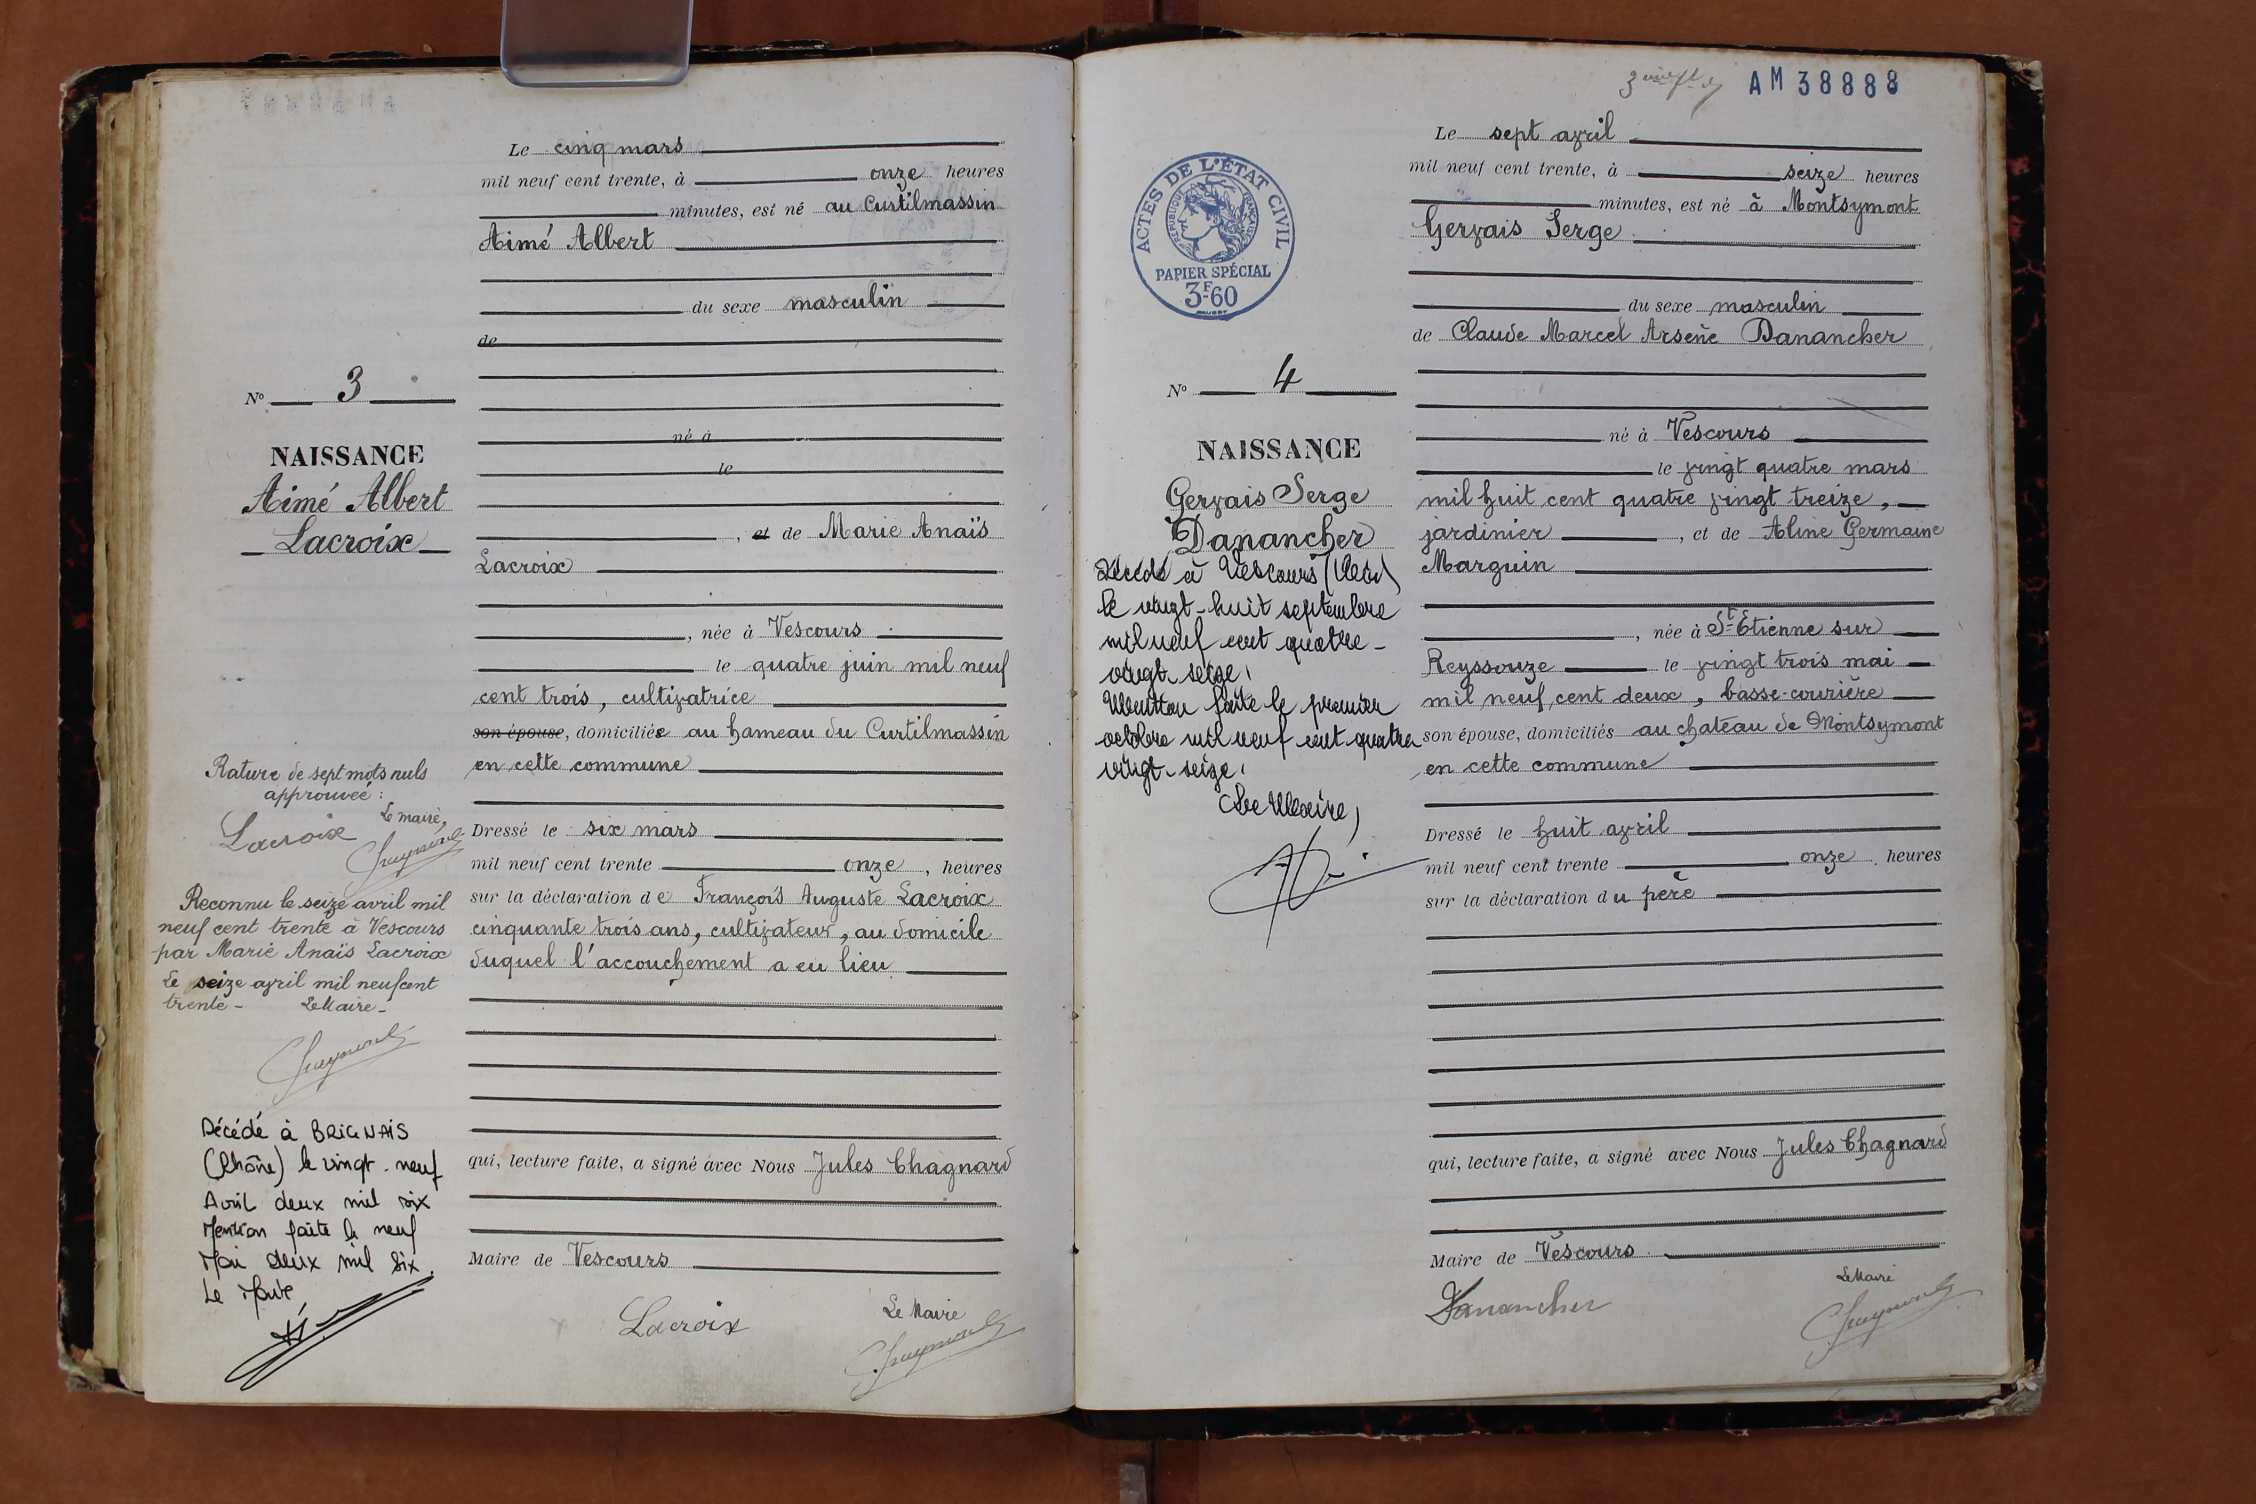 Le cinq mars
mil neuf cent trente, à onze heures
minutes, est né au Curtilmassin
Aimé Albert
du sexe masculin
de
né à
le
, et de Marie Anaïs
Lacroix
, née à Vescours
le quatre juin mil neuf
cent trois, cultivatrice
son épouse, domiciliée au hameau du Curtilmassin
en cette commune
Dressé le six mars
mil neuf cent trente onze, heures
sur la déclaration de François Auguste Lacroix
cinquante trois ans, cultivateur, au domicile
duquel l'accouchement a eu lieu
qui, lecture faite, a signé avec Nous Jules Chagnard
Maire de Vescours
Lacroix
Le Maire
N° 3
NAISSANCE
Aimé Albert
Lacroix
Rature de sept mots nuls
approuvée :
Le maire,
Lacroix
Reconnu le seize avril mil
neuf cent trente à Vescours
par Marie Anaïs Lacroix
Le seize avril mil neuf cent
trente - Le Maire -
Décédé à BRIGNAIS
(Rhône) le vingt-neuf
Avril deux mil six
Mention faite le neuf
Mai deux mil six.
Le Maire
AM 38888
ACTES DE L'ÉTAT CIVIL
RÉPUBLIQUE FRANÇAISE
PAPIER SPÉCIAL
3F60
Le sept avril
mil neuf cent trente, à seize heures
minutes, est né à Montsymont
Gervais Serge
du sexe masculin
de Claude Marcel Arsène Danancher
né à Vescours
le vingt quatre mars
mil huit cent quatre vingt treize,
jardinier, et de Aline Germaine
Marguin
, née à St Etienne sur
Reyssouze le vingt trois mai
mil neuf cent deux, basse-courière
son épouse, domiciliés au château de Montsymont
en cette commune
Dressé le huit avril
mil neuf cent trente onze heures
sur la déclaration du père
qui, lecture faite, a signé avec Nous Jules Chagnard
Maire de Vescours
Danancher
Le Maire
N° 4
NAISSANCE
Gervais Serge
Danancher
Décédé à Vescours (Ain)
le vingt-huit septembre
mil neuf cent quatre-
vingt-seize.
Mention faite le premier
octobre mil neuf cent quatre
vingt-seize.
Le Maire,